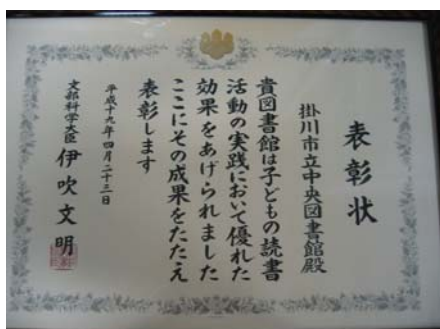 表彰状
掛川市立中央図書館殿
貴図書館は子どもの読書
活動の実践において優れた
効果をあげられました
ここにその成果をたたえ
表彰します
平成十九年四月二十三日
文部科学大臣 伊吹文明